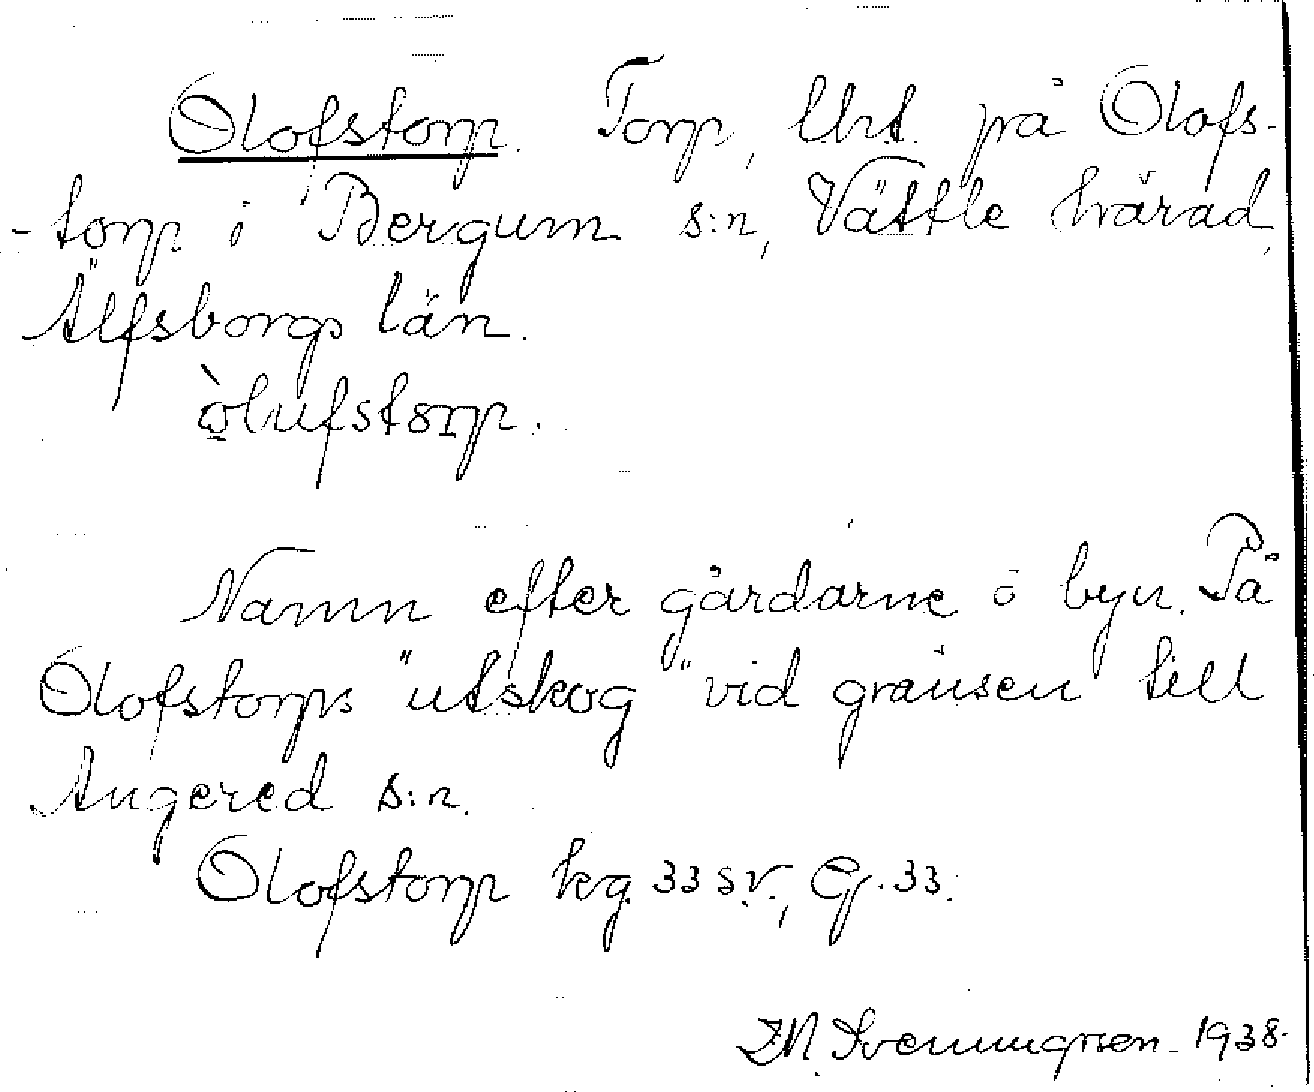 Olofstorp. Torp, Utst. på Olofs-
-torp i Bergum s:n, Vättle härad,
Älfsborgs län.
òlufstorp.
Namn efter gårdarne o byn. På
Olofstorps "utskog" vid gränsen till
Angered s:n.
Olofstorp kg 33 sv., G. 33.
Svenungsson - 1938.